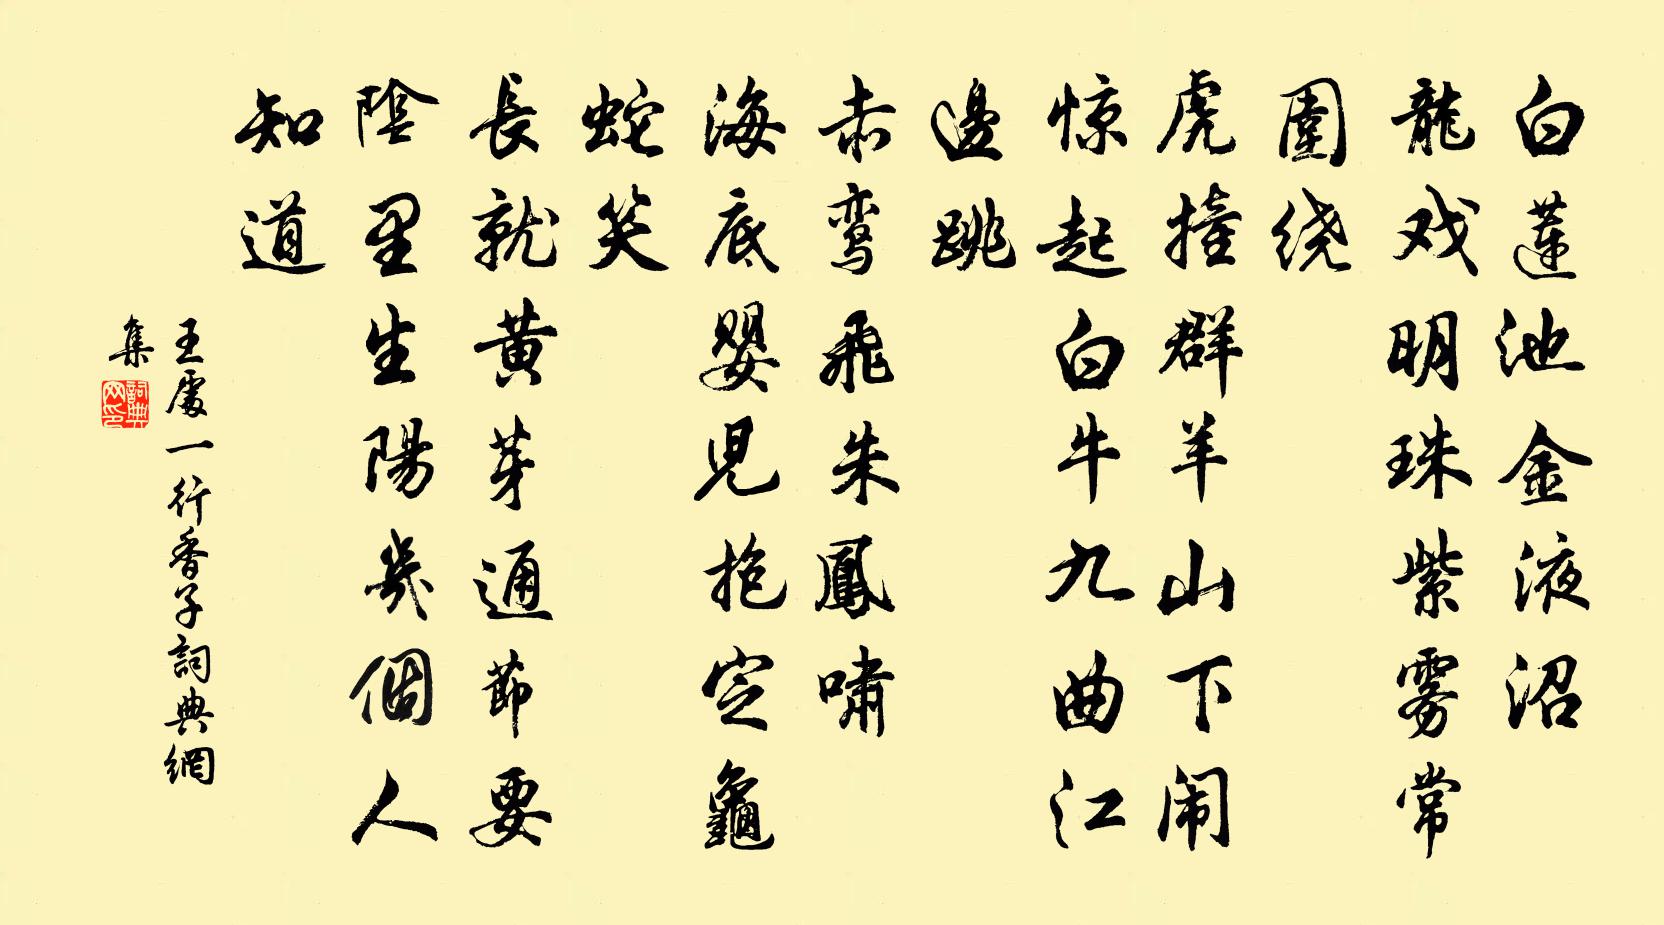 白蓮池金液沼
龍戏明珠紫雾常
圍绕
虎撞群羊山下闹
惊起白牛九曲江
邊跳
赤鸾飛朱鳳啸
海底嬰児抱定龜
蛇笑
長就黄芽通節要
陰里生陽幾個人
知道
王處一行香子詞典網
集
詞典网印